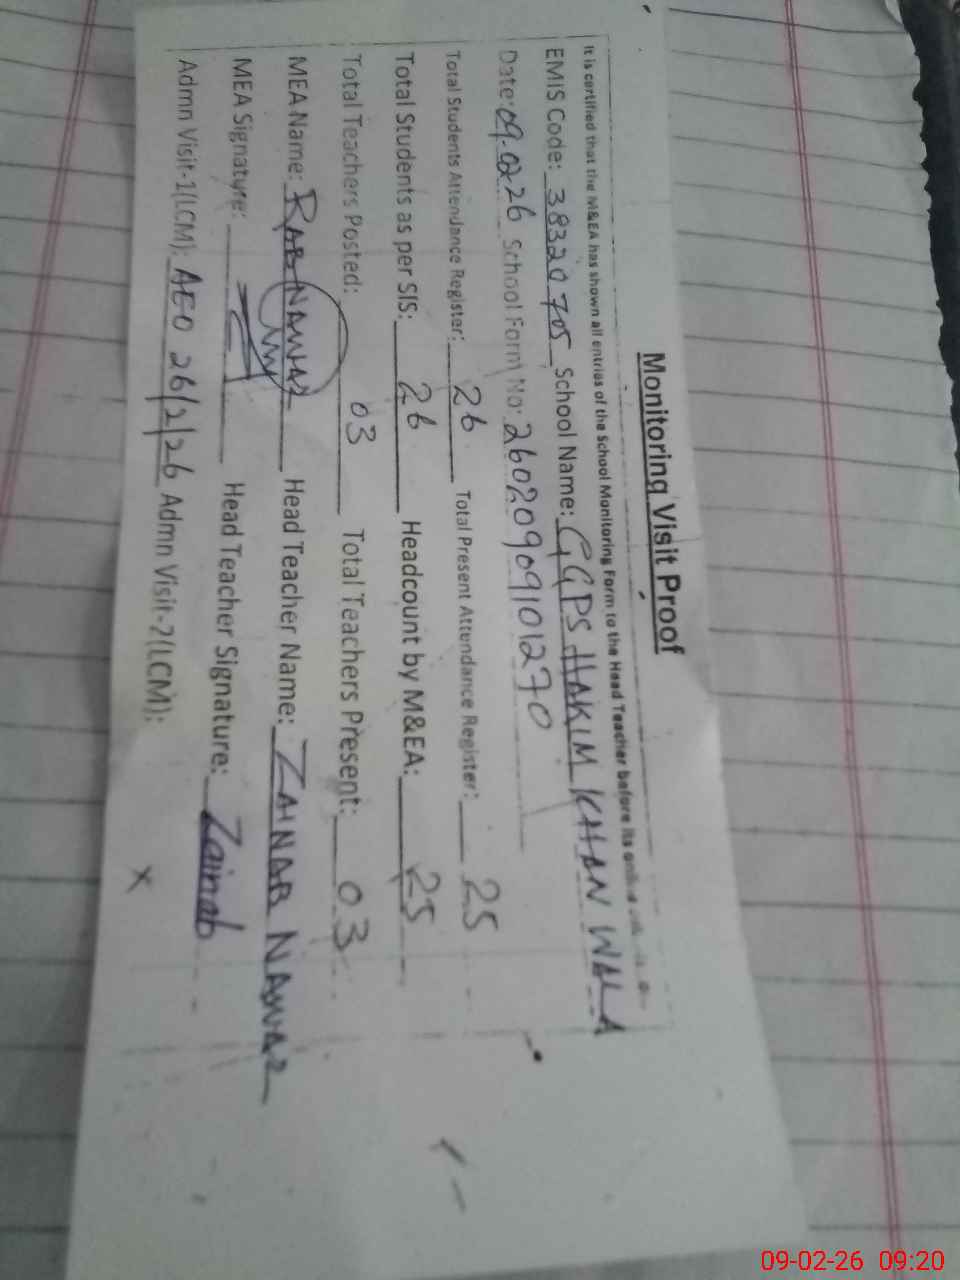 Monitoring Visit Proof
It is certified that the M&EA has shown all entries of the School Monitoring Form to the Head Teacher before its
EMIS Code: 38320705 School Name: GGPS HAKIM KHAN WALA
Date: 09.02.26 School Form No: 26020909101270
Total Students Attendance Register: 26 Total Present Attendance Register: 25
Total Students as per SIS: 26 Headcount by M&EA: 25
Total Teachers Posted: 03 Total Teachers Present: 03
MEA Name: RAB NAWAZ Head Teacher Name: ZAINAB NAWAZ
MEA Signature: Head Teacher Signature: Zainab
Admn Visit-1(LCM): AEO 26/2/26 Admn Visit-2(LCM): X
09-02-26 09:20